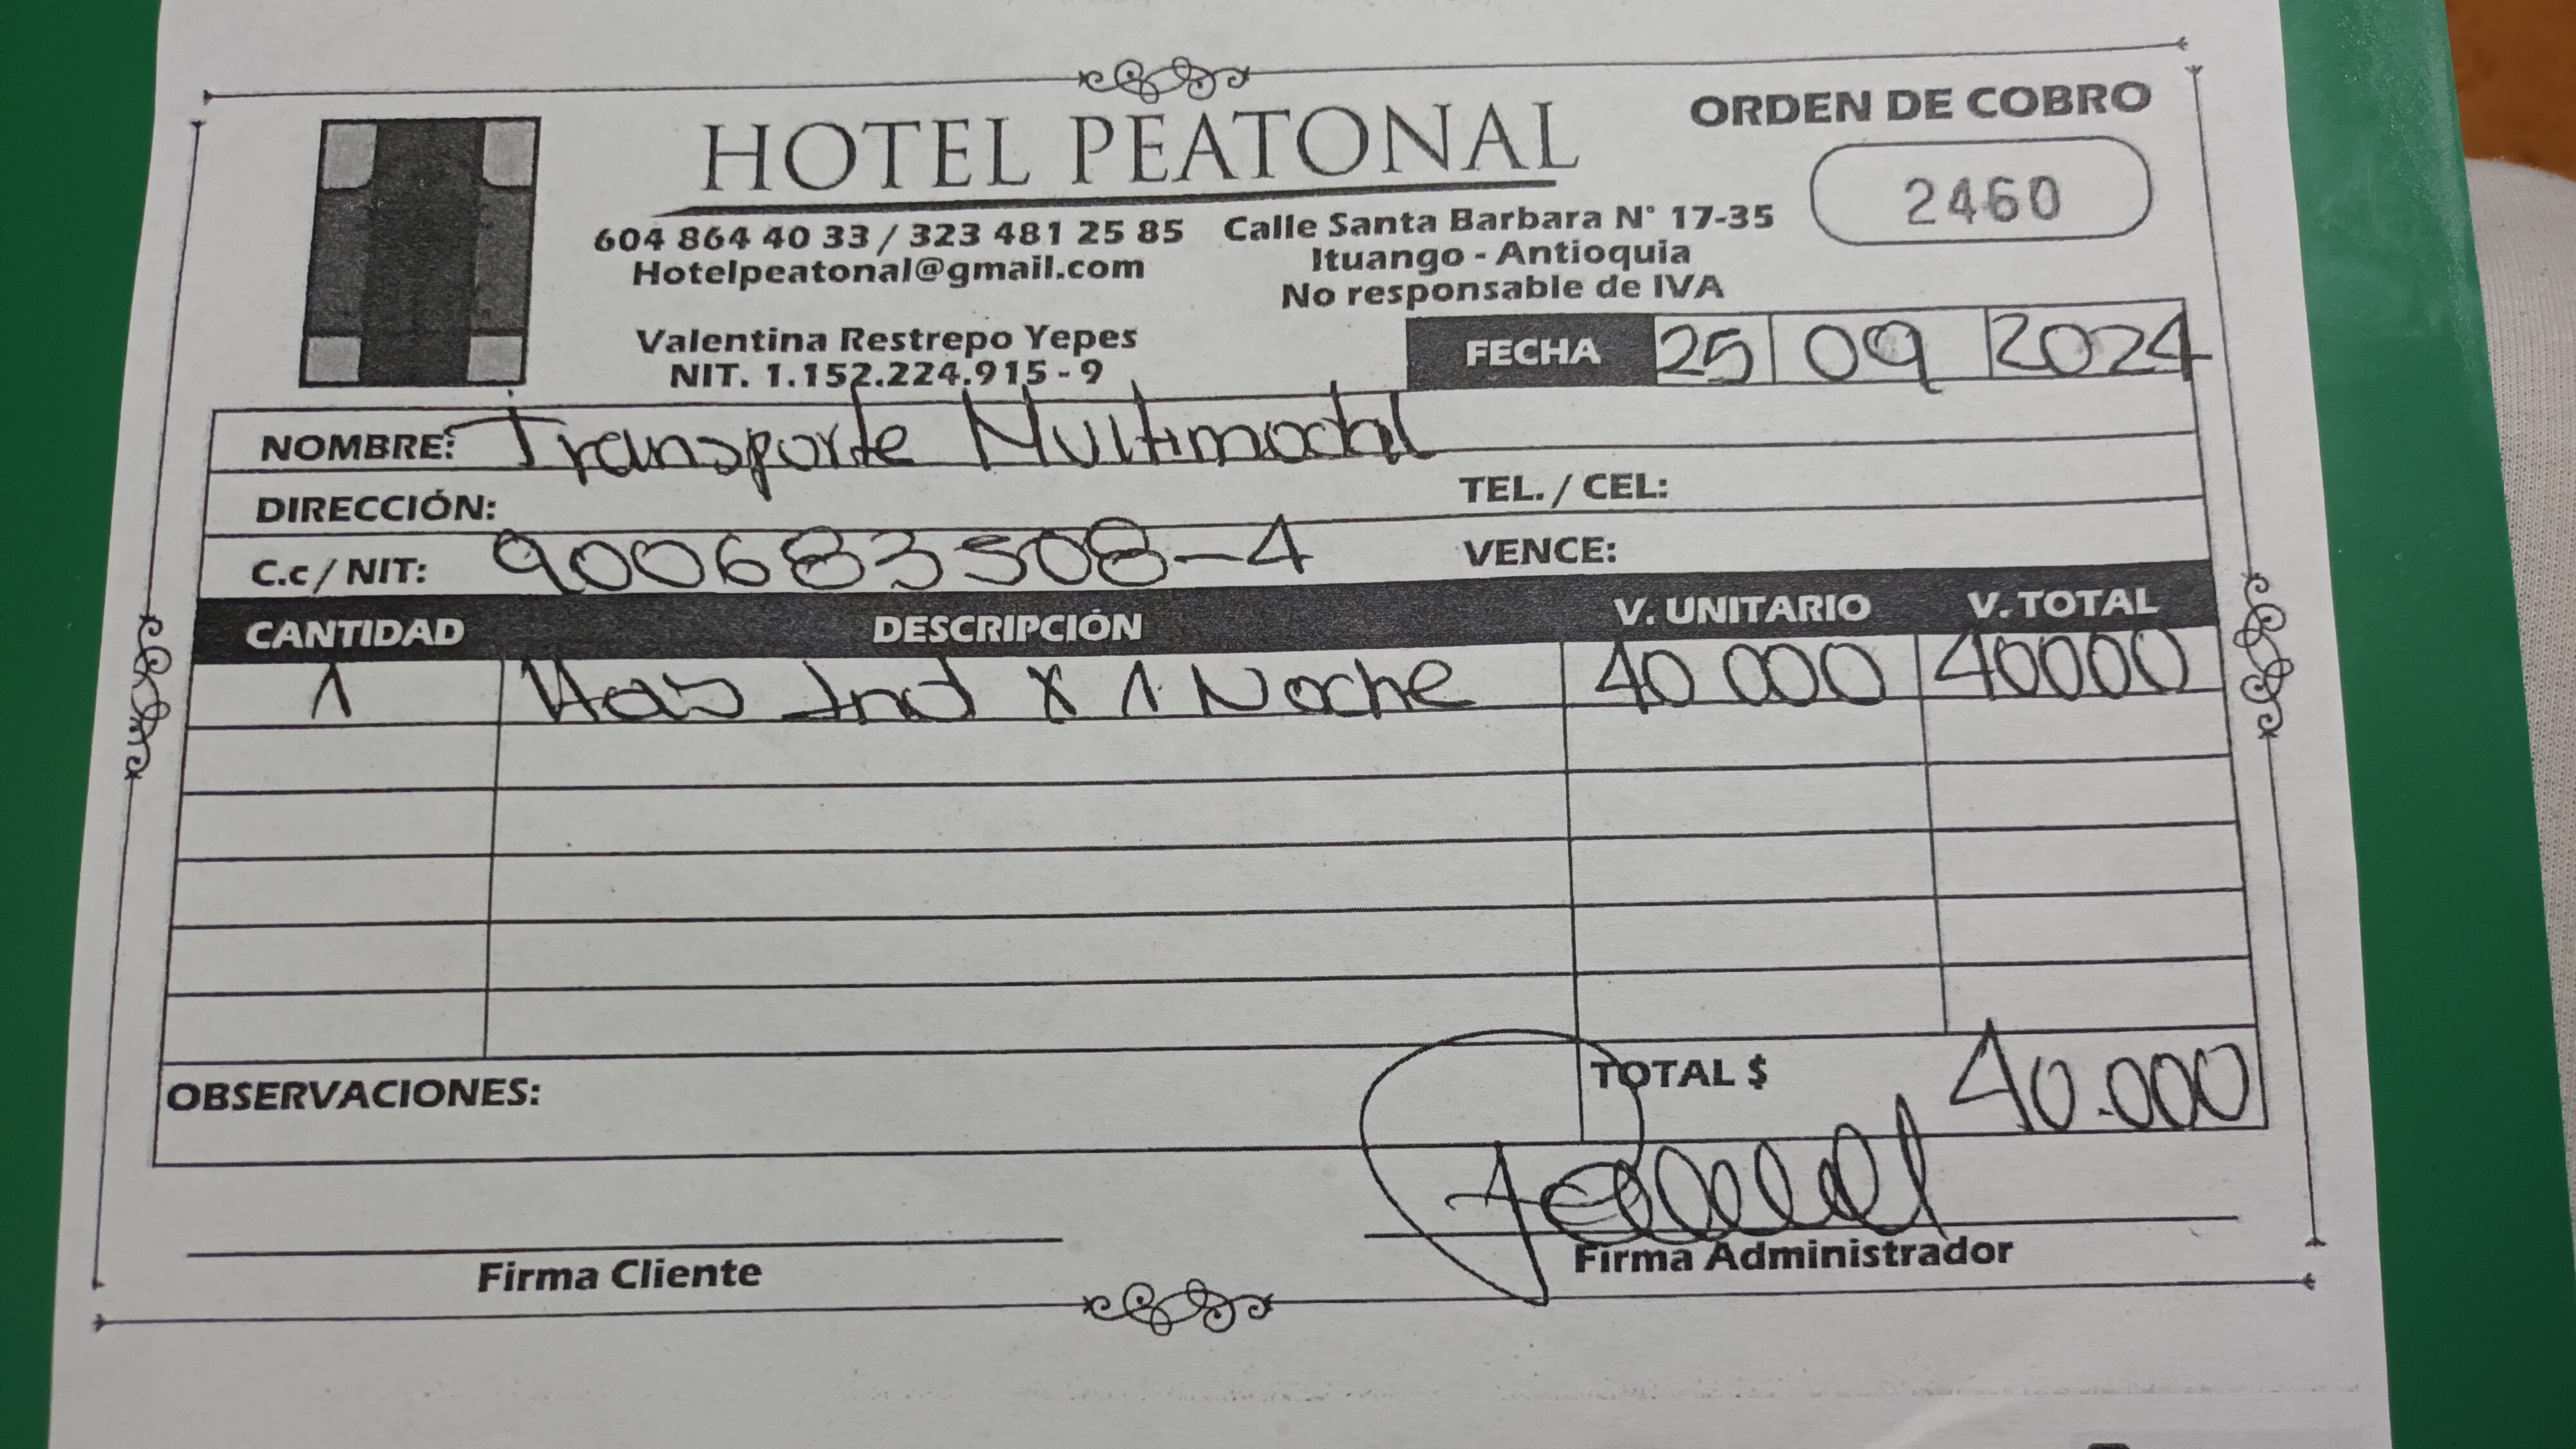 ORDEN DE COBRO
HOTEL PEATONAL
2460
604 864 40 33 / 323 481 25 85
Hotelpeatonal@gmail.com
Calle Santa Barbara N° 17-35
Ituango - Antioquia
No responsable de IVA
Valentina Restrepo Yepes
NIT. 1.152.224.915 - 9
FECHA 25 09 2024
NOMBRE: Transporte Multimodal
DIRECCIÓN: TEL. / CEL:
C.c / NIT: 900683508-4 VENCE:
CANTIDAD DESCRIPCIÓN V. UNITARIO V. TOTAL
1 Hab Ind x 1 Noche 40 000 40000
OBSERVACIONES: TOTAL $ 40.000
Firma Cliente Firma Administrador